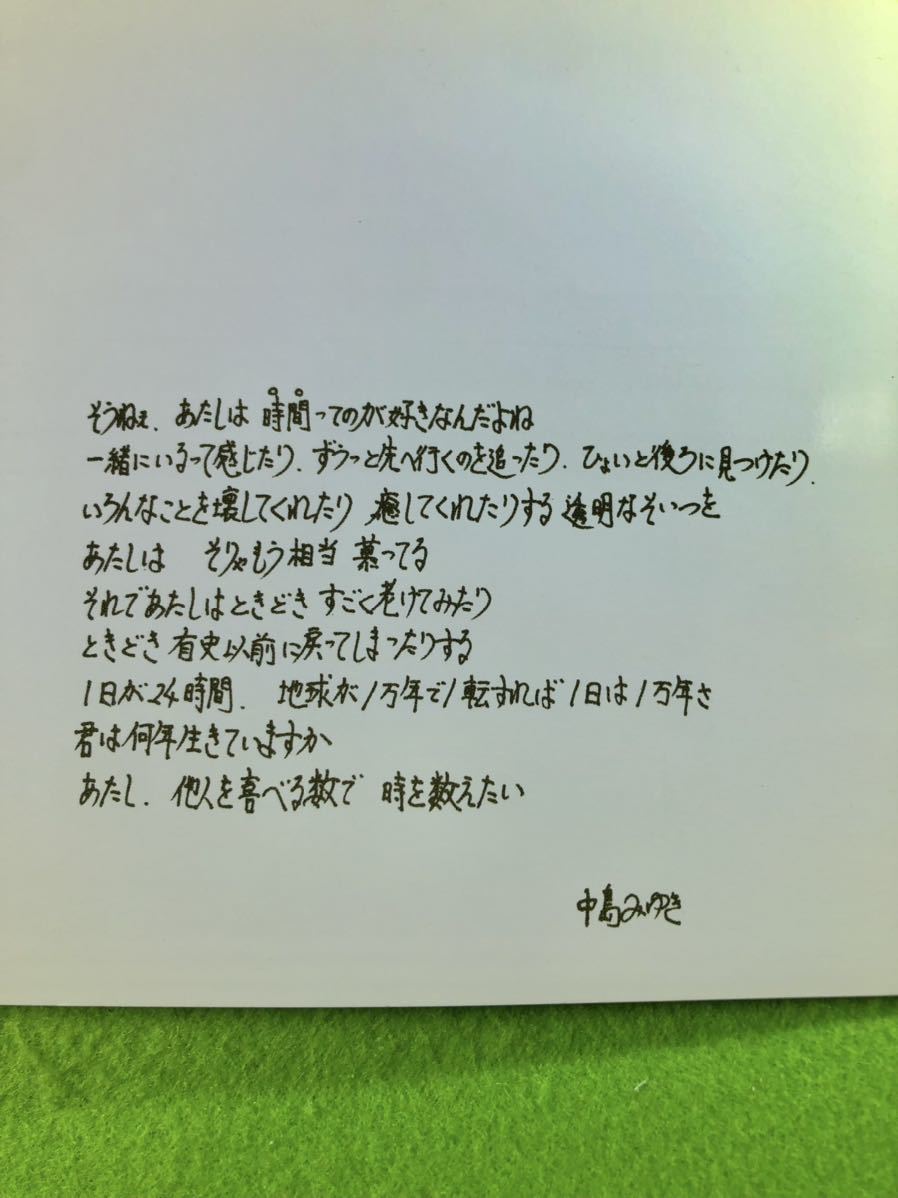 そうねぇ、あたしは 時間ってのが好きなんだよね
一緒にいるって感じたり、ずうっと先へ行くのを追ったり、ひょいと後ろに見つけたり、
いろんなことを壊してくれたり 癒してくれたりする 透明なそいつを
あたしは そりゃもう相当 慕ってる
それであたしはときどき すごく老けてみたり
ときどき 有史以前に戻ってしまったりする
1日が24時間、 地球が1万年で1転すれば 1日は1万年さ
君は何年生きていますか
あたし、他人を喜べる数で 時を数えたい
中島みゆき